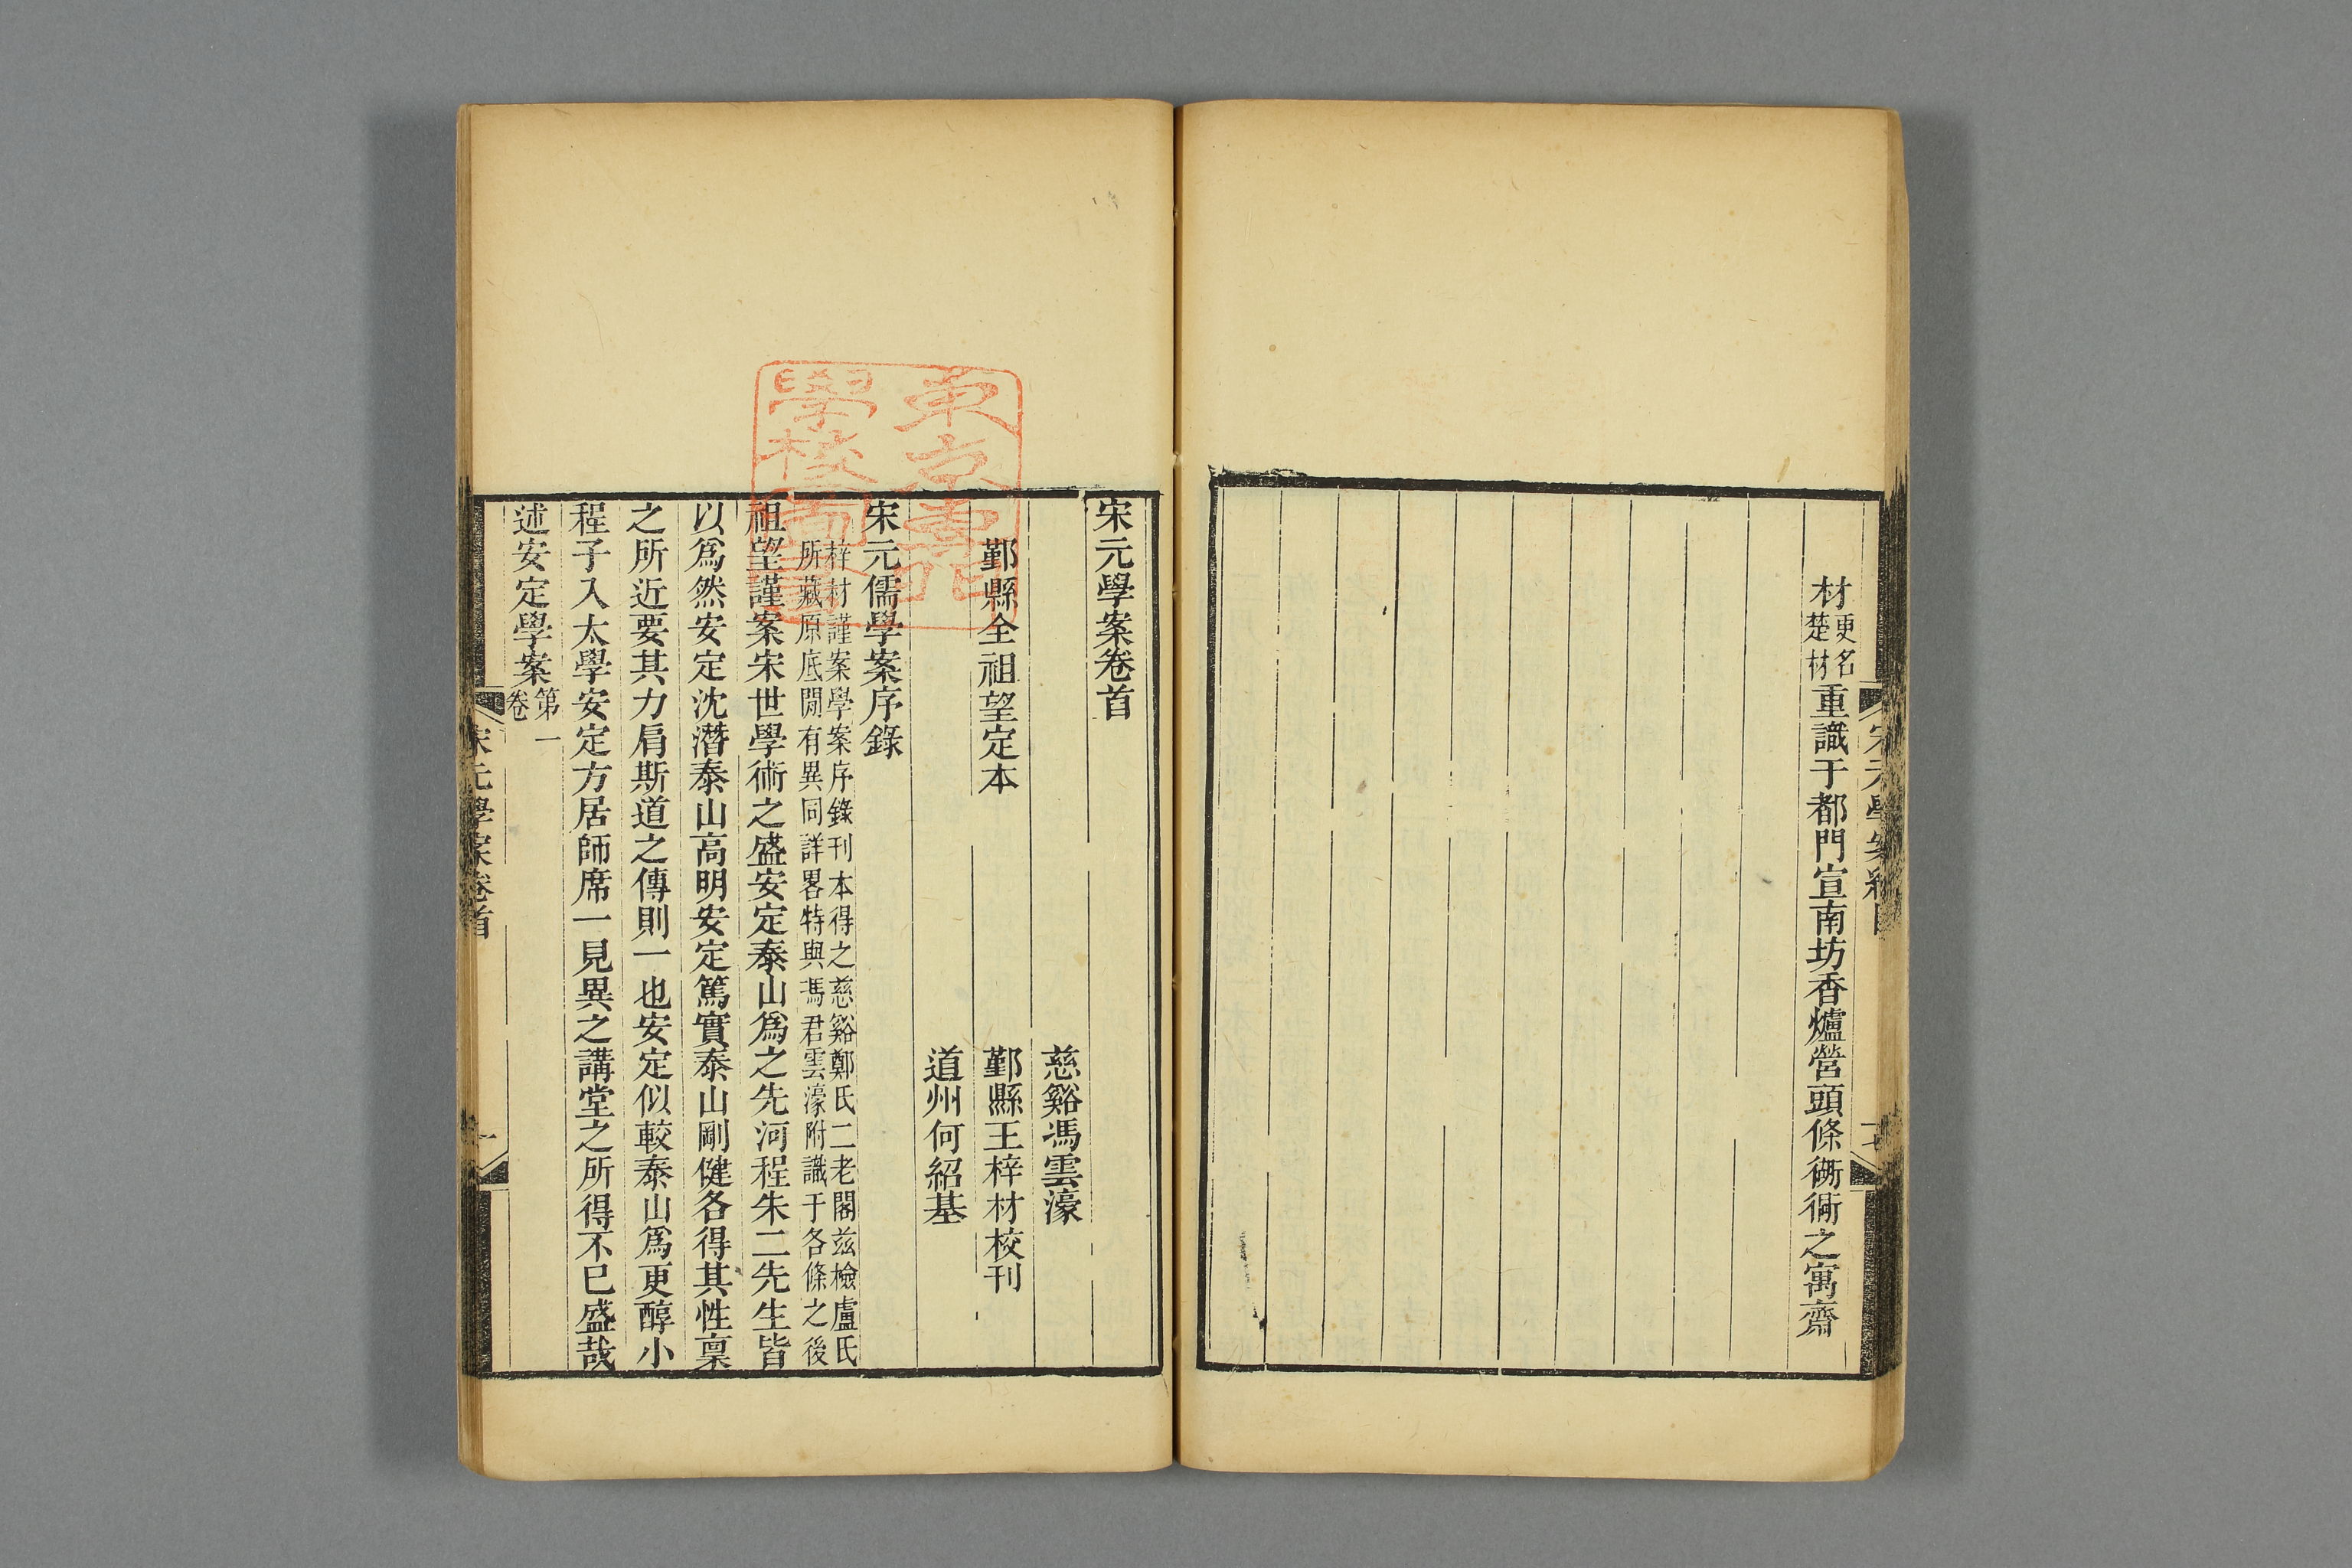 材更名楚材重識于都門宣南坊香爐營頭條衚衕之寓齋
宋元學案卷首
慈谿馮雲濠
鄞縣全祖望定本
鄞縣王梓材校刊
道州何紹基
宋元儒學案序錄
梓材謹案學案序錄刊本得之慈谿鄭氏二老閣茲檢盧氏
所藏原底閒有異同詳畧特與馮君雲濠附識于各條之後
祖望謹案宋世學術之盛安定泰山爲之先河程朱二先生皆
以爲然安定沈潛泰山高明安定篤實泰山剛健各得其性稟
之所近要其力肩斯道之傳則一也安定似較泰山爲更醇小
程子入太學安定方居師席一見異之講堂之所得不已盛哉
述安定學案第一卷
宋元學案卷首
一
東京專門
學校圖書